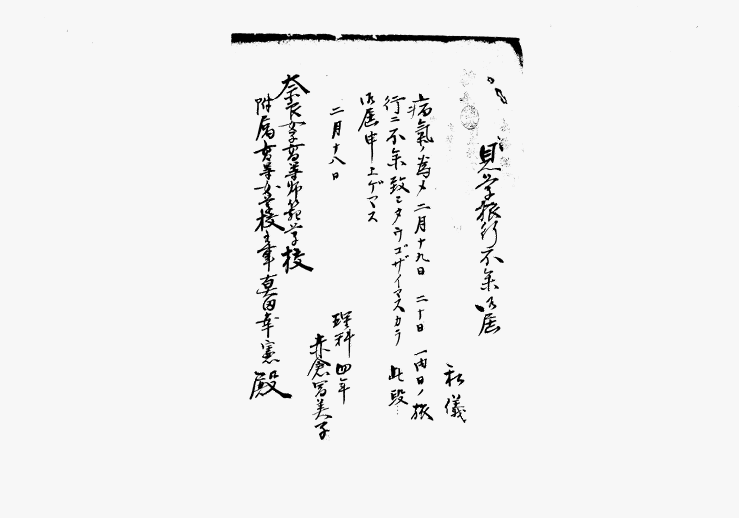 見学旅行不参御届
私儀
病氣ノ為メ二月十九日 二十日 一両日ノ旅
行ニ不参致シタウゴザイマスカラ 此段
御届申上ゲマス
二月十八日
理科四年
赤倉冨美子
奈良女子高等師範学校
附属高等女学校主事真田幸憲殿